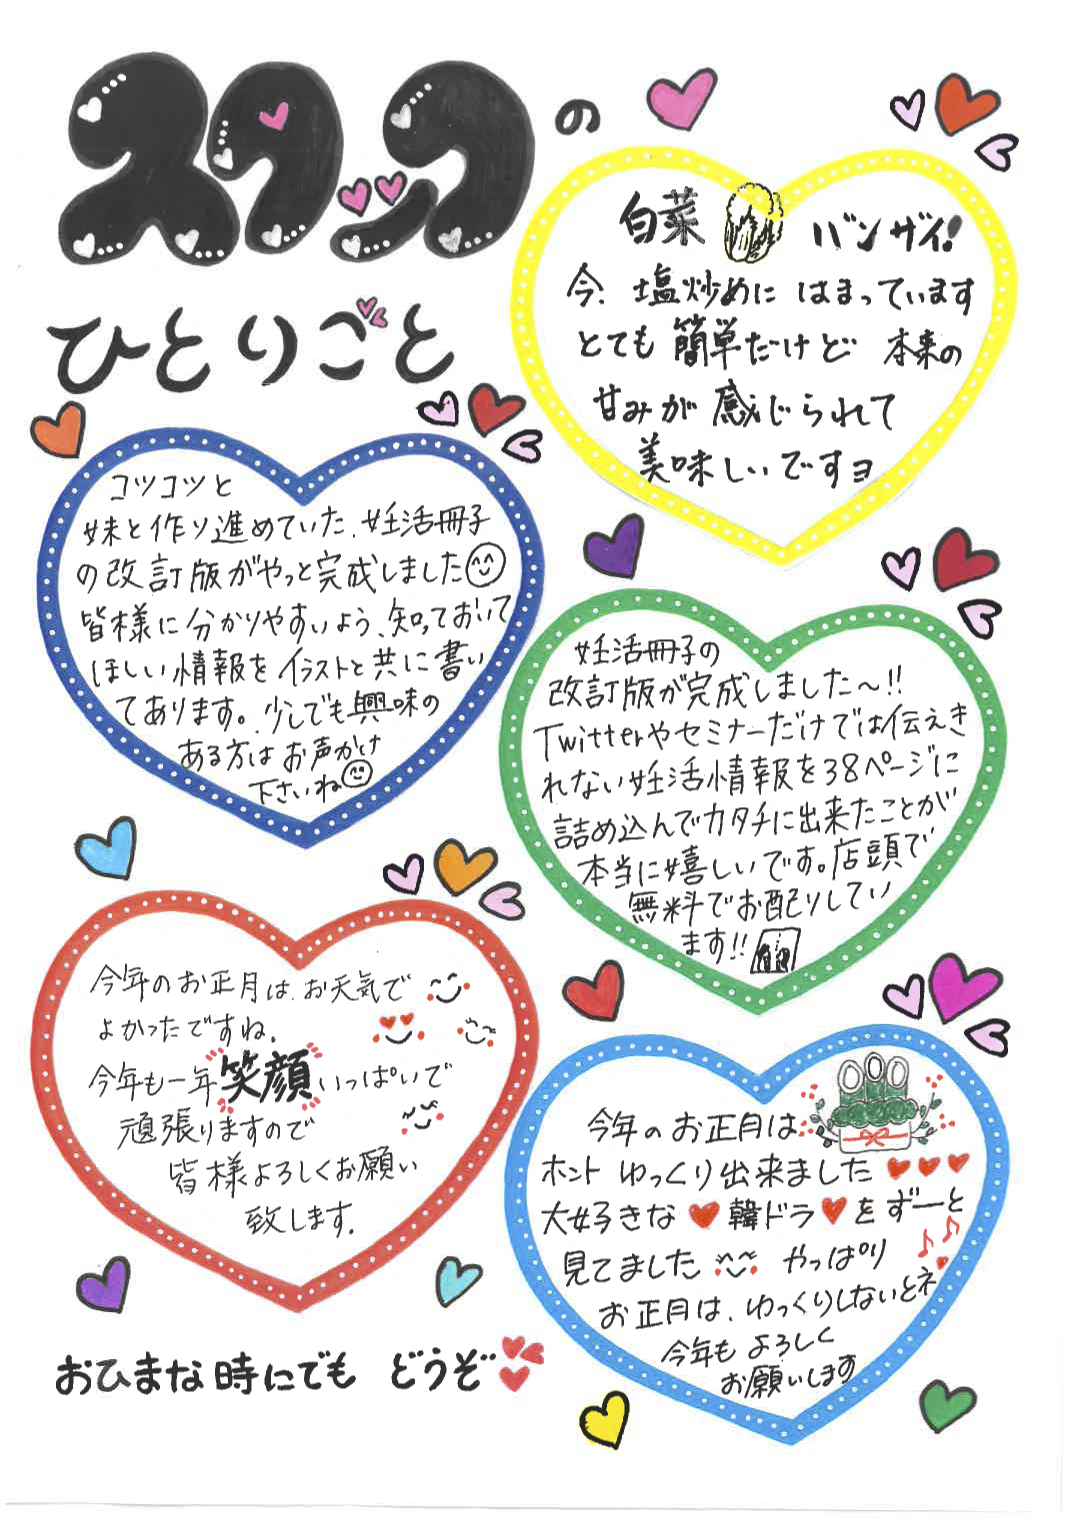 スタッフの
ひとりごと
白菜 バンザイ!
今、塩炒めに はまっています
とても 簡単だけど 本来の
甘みが 感じられて
美味しいですョ
コツコツと
妹と作り進めていた、妊活冊子
の改訂版がやっと完成しました
皆様に分かりやすいよう、知っておいて
ほしい情報をイラストと共に書い
てあります。少しでも興味の
ある方はお声かけ
下さいね
妊活冊子の
改訂版が完成しました〜!!
Twitterやセミナーだけでは伝えき
れない妊活情報を38ページに
詰め込んでカタチに出来たことが
本当に嬉しいです。店頭で
無料でお配りしてい
ます!!
今年のお正月は、お天気で
よかったですね。
今年も一年笑顔いっぱいで
頑張りますので
皆様よろしくお願い
致します。
今年のお正月は
ホント ゆっくり出来ました
大好きな 韓ドラ を ずーと
見てました やっぱり
お正月は、ゆっくりしないとネ
今年も よろしく
お願いします
おひまな時にでも どうぞ